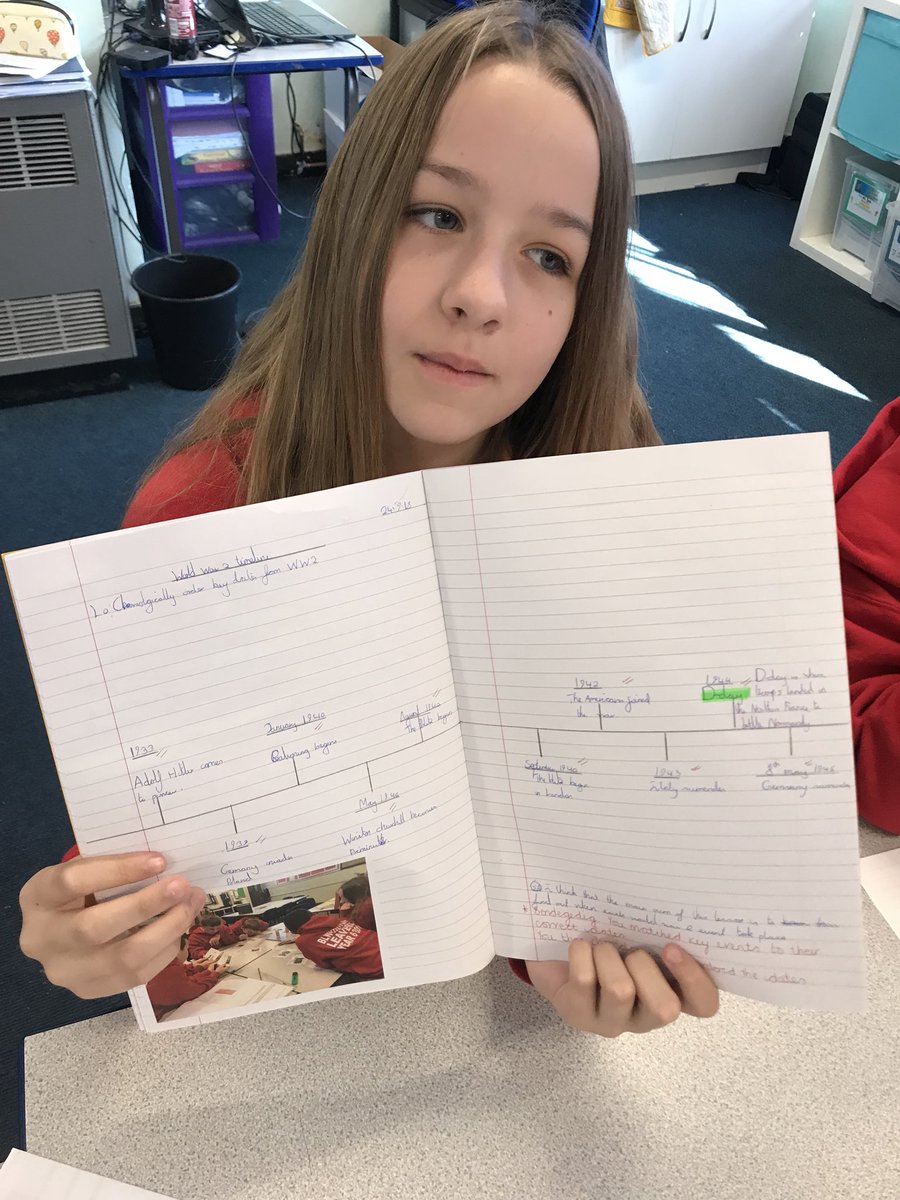 World War 2 timeline
L.o: Chronologically order key dates from WW2
1933
Adolf Hitler comes
to power.
1939
Germany invades
Poland
January 1940
Rationing begins
May 1940
Winston churchill becomes
August 1940
The blitz begins
September 1940
The blitz began
in London
1942
The Americans joined
the war
1943
Italy surrender
1944
D-day
D-day is where
troops landed in
the Northern France to
battle Normandy
8th may 1945
Germany surrender
I think this the main
find out when each world war 2 event took place
you matched key events to their
correct dates.
the dates
LEAVERS
YEAR 6